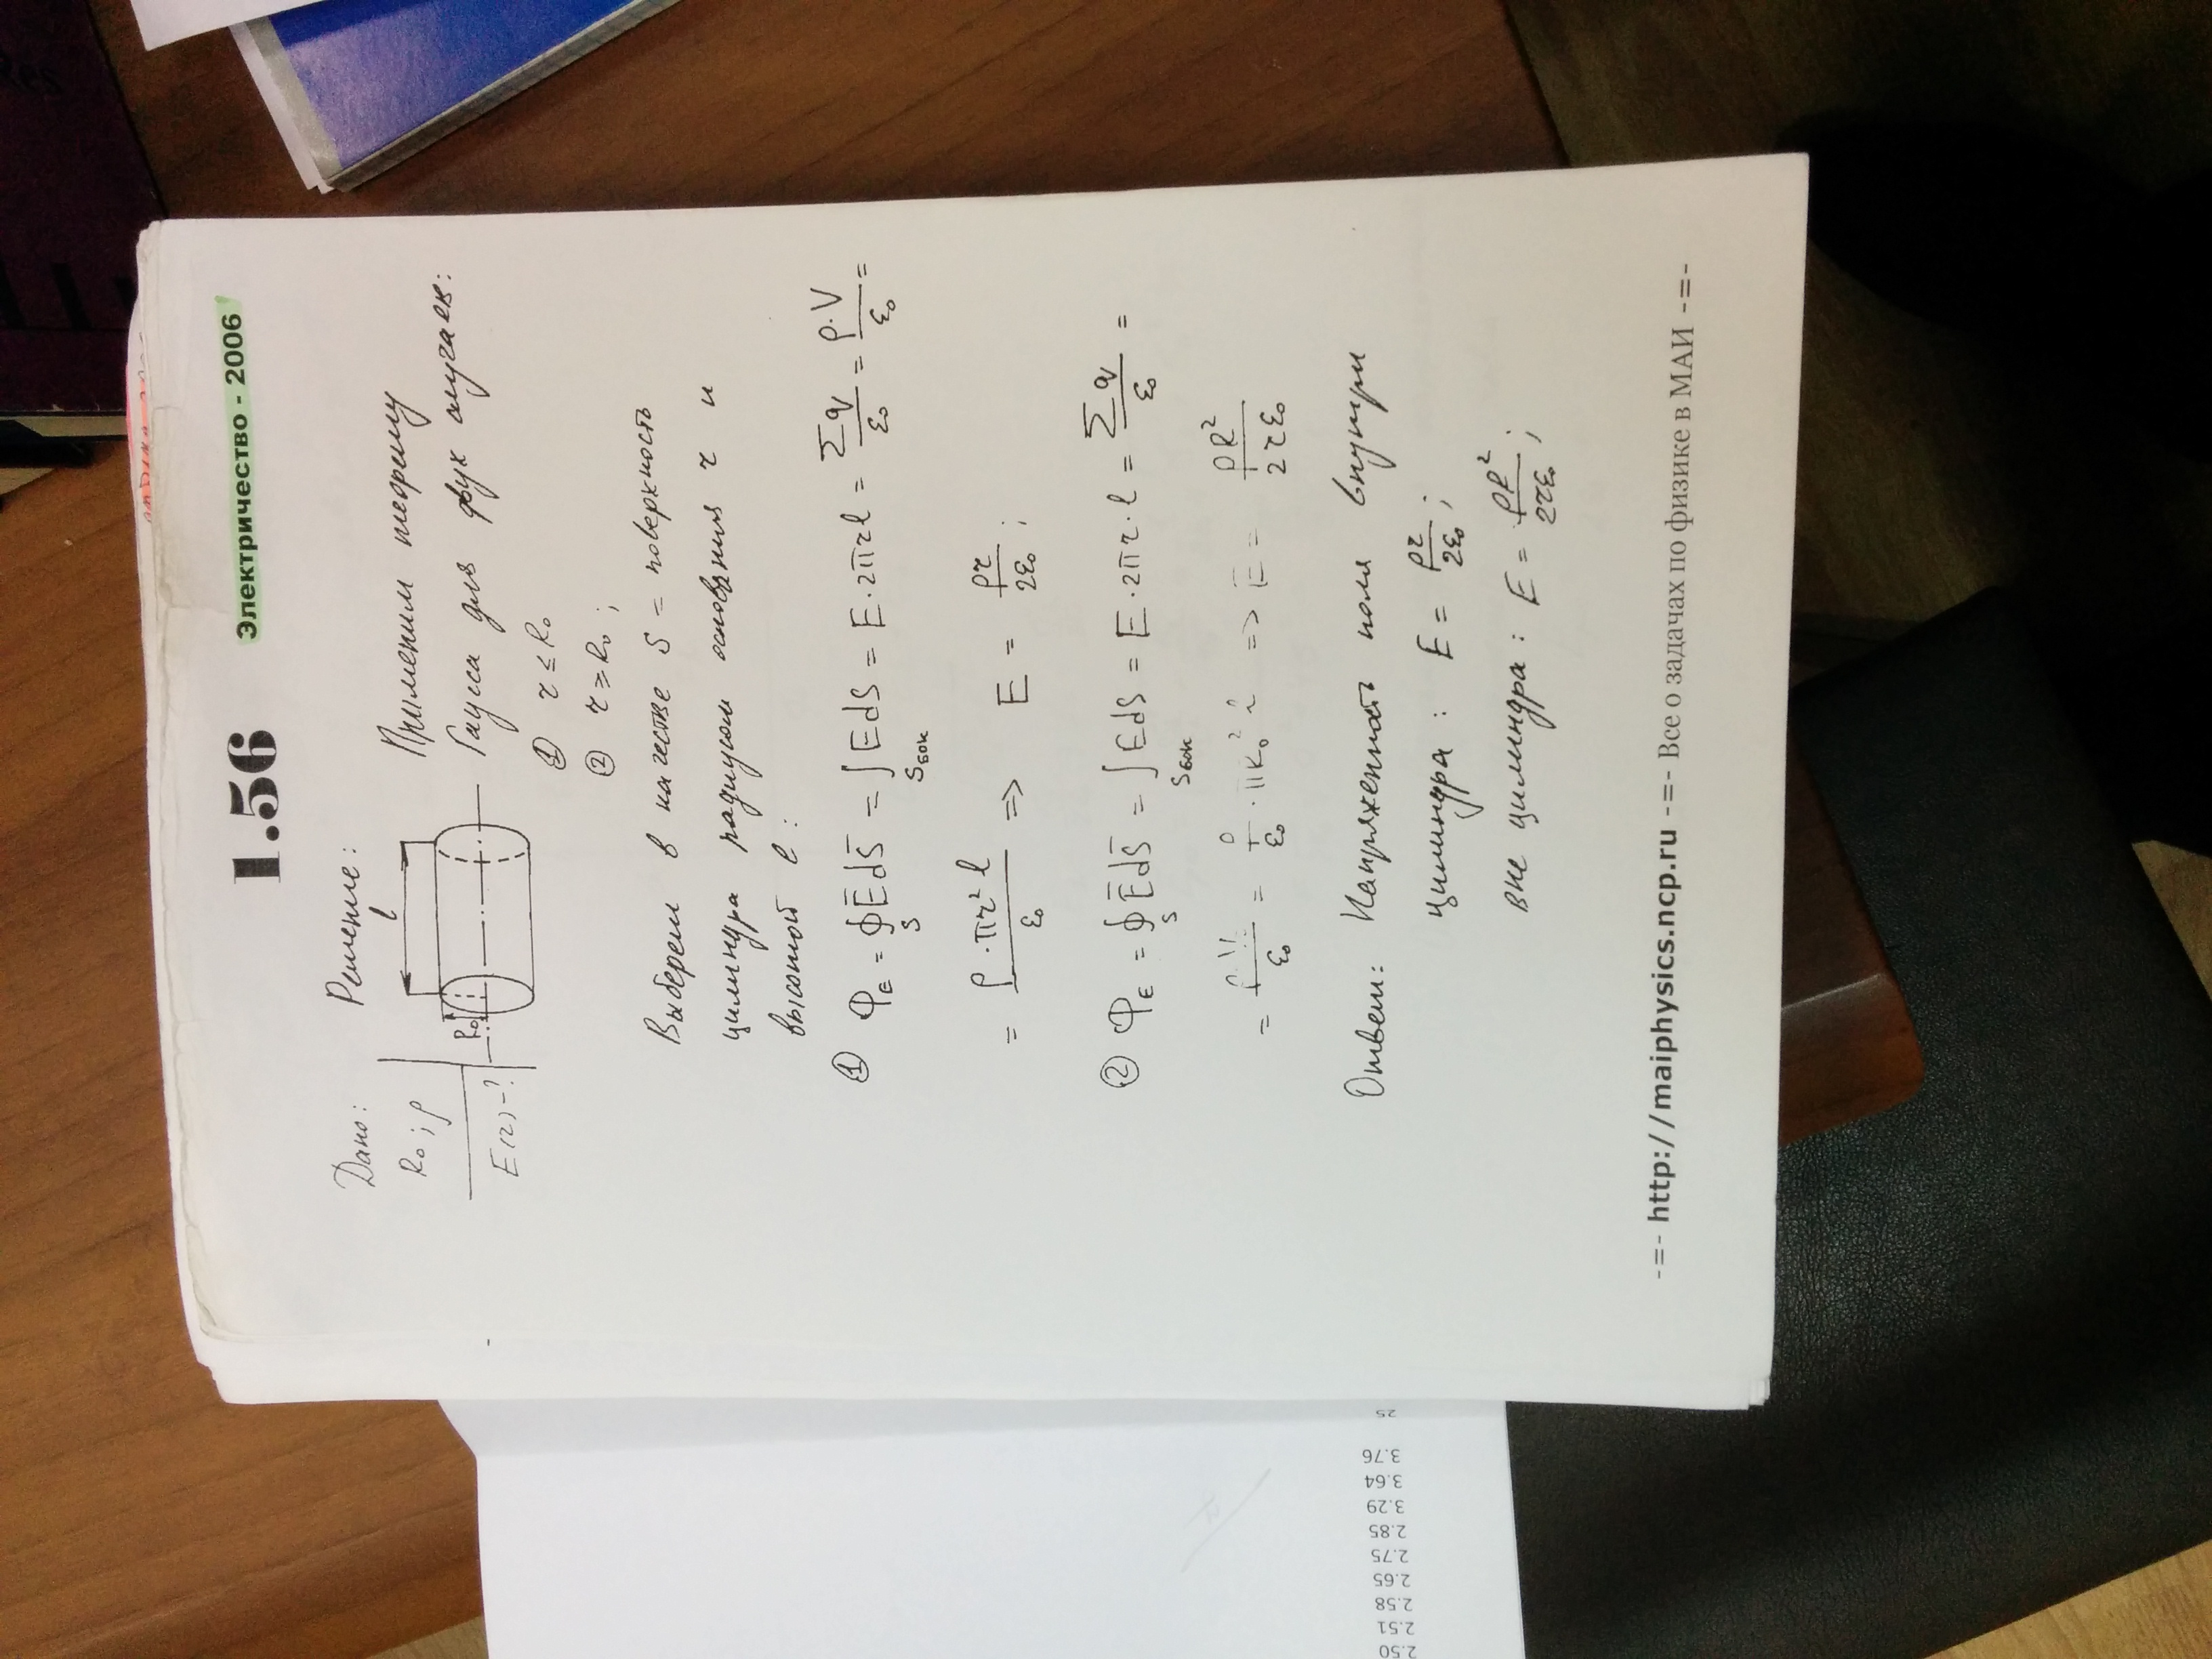 1.56 Электричество - 2006
Дано: Решение:
R₀ ; ρ
E(r) - ?
l
R₀
Применим теорему
Гаусса для двух случаев:
① r ≤ R₀
② r ≥ R₀ ;
Выберем в качестве S = поверхность
цилиндра радиусом основания r и
высотой l :
① Φ_E = ∮_S E̅dS̅ = ∫_Sбок EdS = E·2πrl = Σq/ε₀ = ρ·V/ε₀ =
= ρ·πr²l/ε₀ => E = ρr/2ε₀ ;
② Φ_E = ∮_S E̅dS̅ = ∫_Sбок EdS = E·2πr·l = Σq/ε₀ =
= ρ·V/ε₀ = ρ/ε₀ · πR₀² l => E = ρR²/2rε₀
Ответ: Напряженность поля внутри
цилиндра : E = ρr/2ε₀ ;
вне цилиндра : E = ρR²/2rε₀ ;
-=- http://maiphysics.ncp.ru -=- Все о задачах по физике в МАИ -=-
25
3.76
3.64
3.29
2.85
2.75
2.65
2.58
2.51
2.50